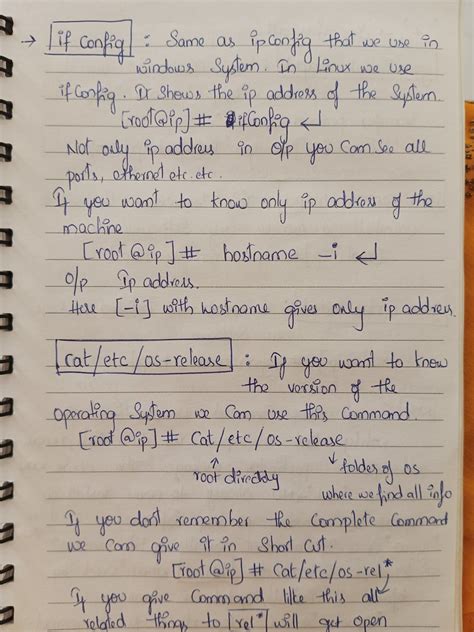 → if Config : Same as ipConfig that we use in
windows System. In Linux we use
ifConfig. It shows the ip address of the System.
[root@ip]# ifConfig ↵
Not only ip address in o/p you Can See all
ports, ethernet etc. etc.
If you want to know only ip address of the
machine
[root@ip]# hostname -i ↵
o/p Ip address.
Here [-i] with hostname gives only ip address.
cat/etc/os-release : If you want to know
the version of the
operating System we Can use this Command.
[root@ip]# Cat/etc/os-release
↑ ↓ folder of os
root directory where we find all info
If you dont remember the Complete Command
we Can give it in Short Cut.
[root@ip]# Cat/etc/os-rel*
If you give Command like this all
related things to [rel*] will get open